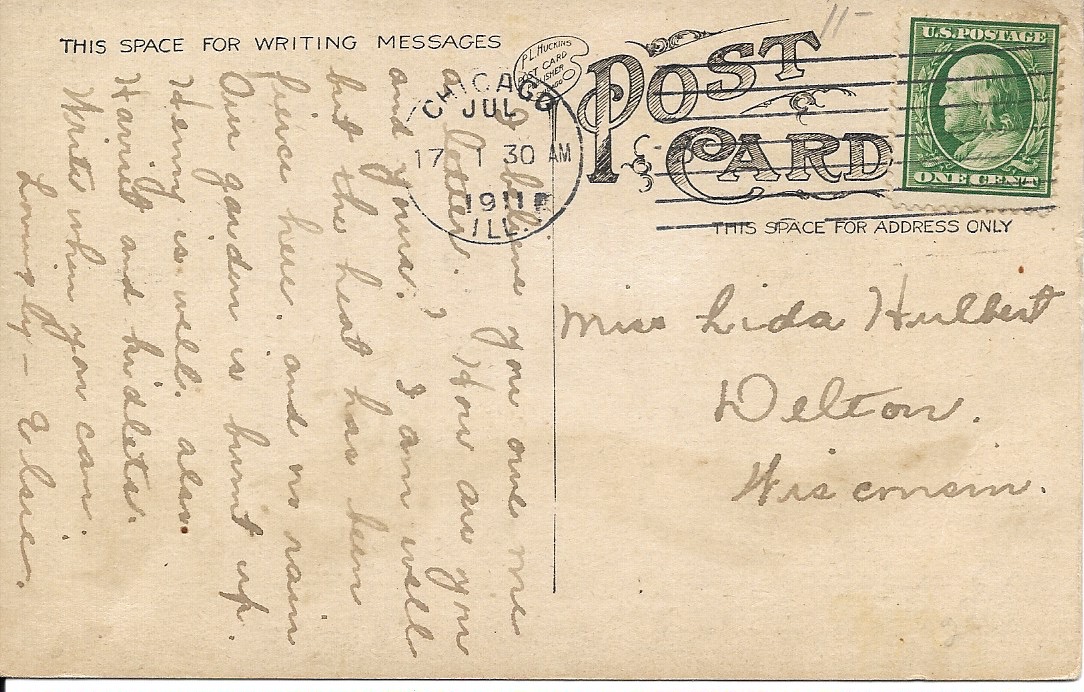 THIS SPACE FOR WRITING MESSAGES
P.L. HUCKINS
POST CARD
POST CARD
U.S. POSTAGE
ONE CENT
11-
CHICAGO
JUL
17 1 30 AM
1911
ILL.
THIS SPACE FOR ADDRESS ONLY
I believe you owe me
a letter. How are you
and yours? I am well
but the heat has been
fierce here, and no rain
Our garden is burnt up.
Henry is well. also.
Harriet and
Write when you can.
Lovingly - Elsie.
Miss Lida Hulbert
Delton.
Wisconsin.